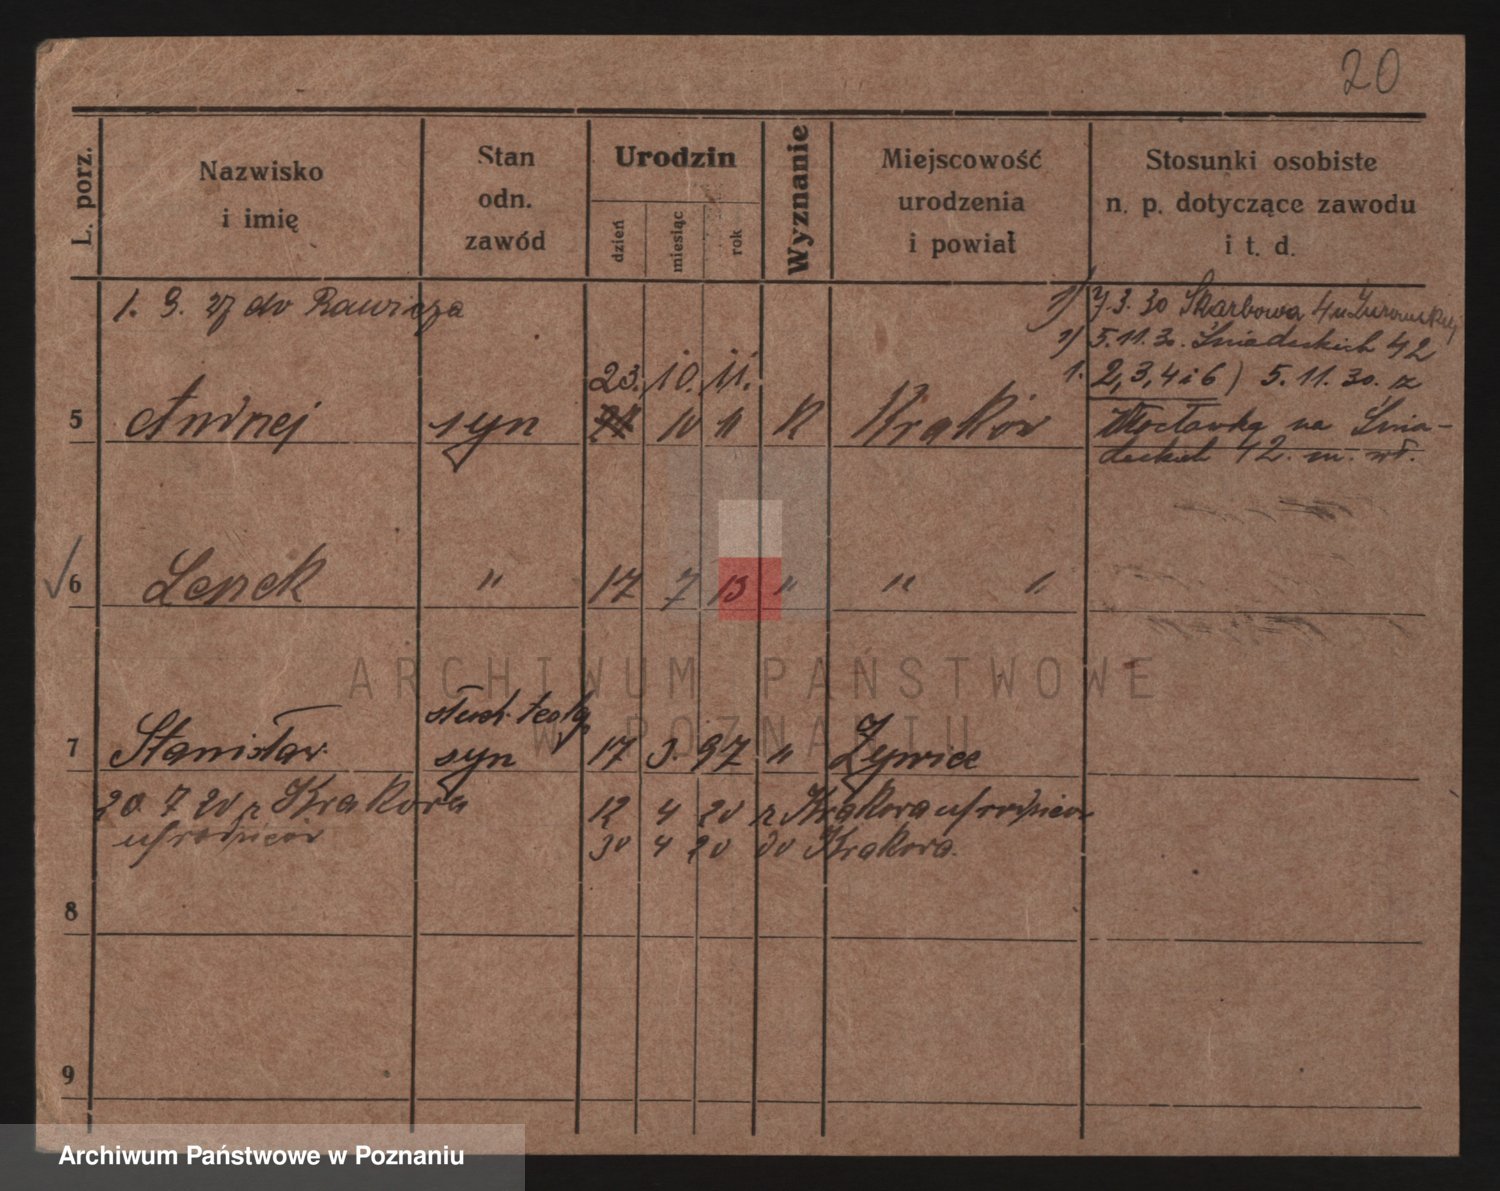 20
L. porz.
Nazwisko
i imię
Stan
odn.
zawód
Urodzin
dzień
miesiąc
rok
Wyznanie
Miejscowość
urodzenia
i powiat
Stosunki osobiste
n. p. dotyczące zawodu
i t. d.
1. 9. 27 do Rawicza
1) 7.3.30 Skarbowa 4 u Żurowskiej
2) 5.11.30. Śniadeckich 42
1. 2,3,4 i 6) 5.11.30. z
Włocławka na Śnia-
deckich 42. m. wł.
23. 10. 11.
5 Andrzej syn 10 11 R Kraków
6 Leszek " 17 7 13 " " "
stud. teolg.
7 Stanisław syn 17 3. 97 " Żywiec
20 7 20 z Krakowa
12 4 20 z Krakowa u/rodziców
u/rodziców
30 4 20 do Krakowa.
8
9
ARCHIWUM PAŃSTWOWE
W POZNANIU
Archiwum Państwowe w Poznaniu